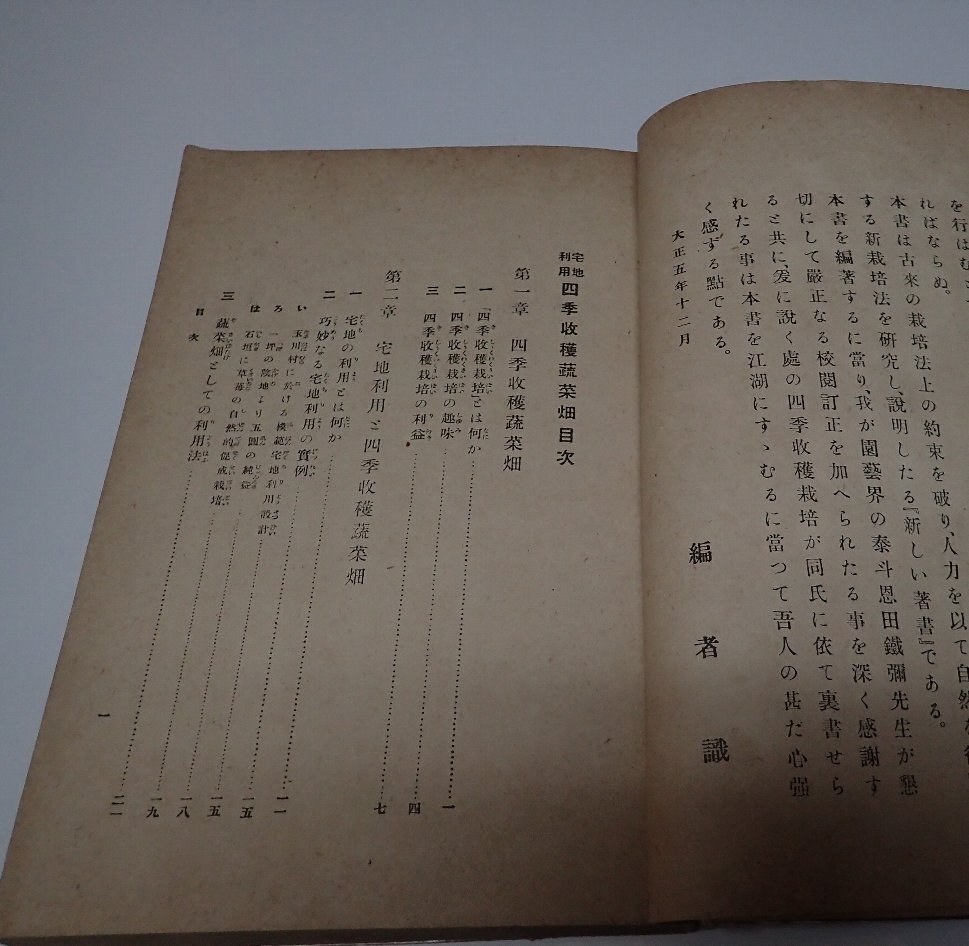 を行はむ
ればならぬ。
本書は古来の栽培法上の約束を破り、人力を以て自然を
する新栽培法を研究し、説明したる『新しい著書』である。
本書を編著するに當り、我が園藝界の泰斗恩田鐵彌先生が懇
切にして嚴正なる校閲訂正を加へられたる事を深く感謝す
ると共に、爰に説く處の四季收穫栽培が同氏に依て裏書せら
れたる事は本書を江湖にすゝむるに當つて吾人の甚だ心强
く感ずる點である。
大正五年十二月
編者識
宅地利用四季收穫蔬菜畑目次
第一章 四季收穫蔬菜畑
一 「四季收穫栽培」とは何か……一
二 四季收穫栽培の趣味……四
三 四季收穫栽培の利益……七
第二章 宅地利用と四季收穫蔬菜畑
一 宅地の利用とは何か……一一
二 巧妙なる宅地利用の實例……一五
い 玉川村に於ける模範宅地利用設計……一五
ろ 一坪の陰地より五圓の純益……一八
は 石垣に草苺の自然的促成栽培……一九
三 蔬菜畑としての利用法……二一
目次
一